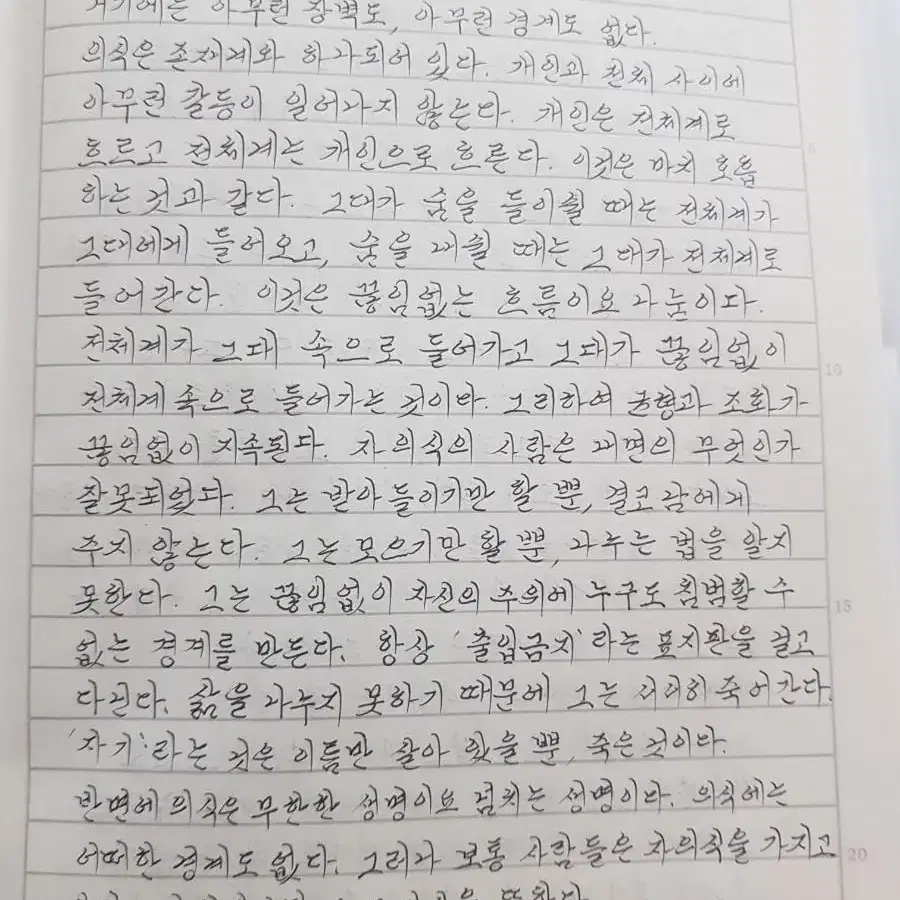 거기에는 아무런 장벽도, 아무런 경계도 없다.
의식은 존재계와 하나되어 있다. 개인과 전체 사이에
아무런 갈등이 일어나지 않는다. 개인은 전체계로
흐르고 전체계는 개인으로 흐른다. 이것은 마치 호흡
하는 것과 같다. 그대가 숨을 들이쉴 때는 전체계가
그대에게 들어오고, 숨을 내쉴 때는 그대가 전체계로
들어간다. 이것은 끊임없는 흐름이요 나눔이다.
전체계가 그대 속으로 들어가고 그대가 끊임없이
전체계 속으로 들어가는 것이다. 그리하여 균형과 조화가
끊임없이 지속된다. 자의식의 사람은 내면의 무엇인가
잘못되었다. 그는 받아들이기만 할 뿐, 결코 남에게
주지 않는다. 그는 모으기만 할 뿐, 나누는 법을 알지
못한다. 그는 끊임없이 자신의 주위에 누구도 침범할 수
없는 경계를 만든다. 항상 '출입금지'라는 표지판을 걸고
다닌다. 삶을 나누지 못하기 때문에 그는 서서히 죽어간다.
'자기'라는 것은 이름만 살아 있을 뿐, 죽은 것이다.
반면에 의식은 무한한 생명이요 넘치는 생명이다. 의식에는
어떠한 경계도 없다. 그러나 보통 사람들은 자의식을 가지고
10
15
20